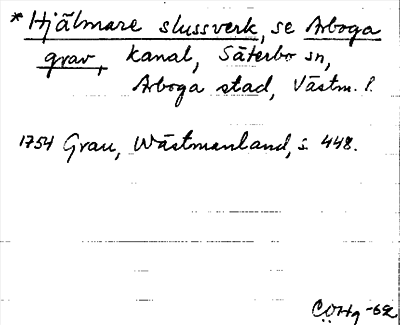 * Hjälmare slussverk, se Arboga
grav, kanal, Säterbo sn,
Arboga stad, Västm. l.
1754 Grau, Wästmanland, s. 448.
-62